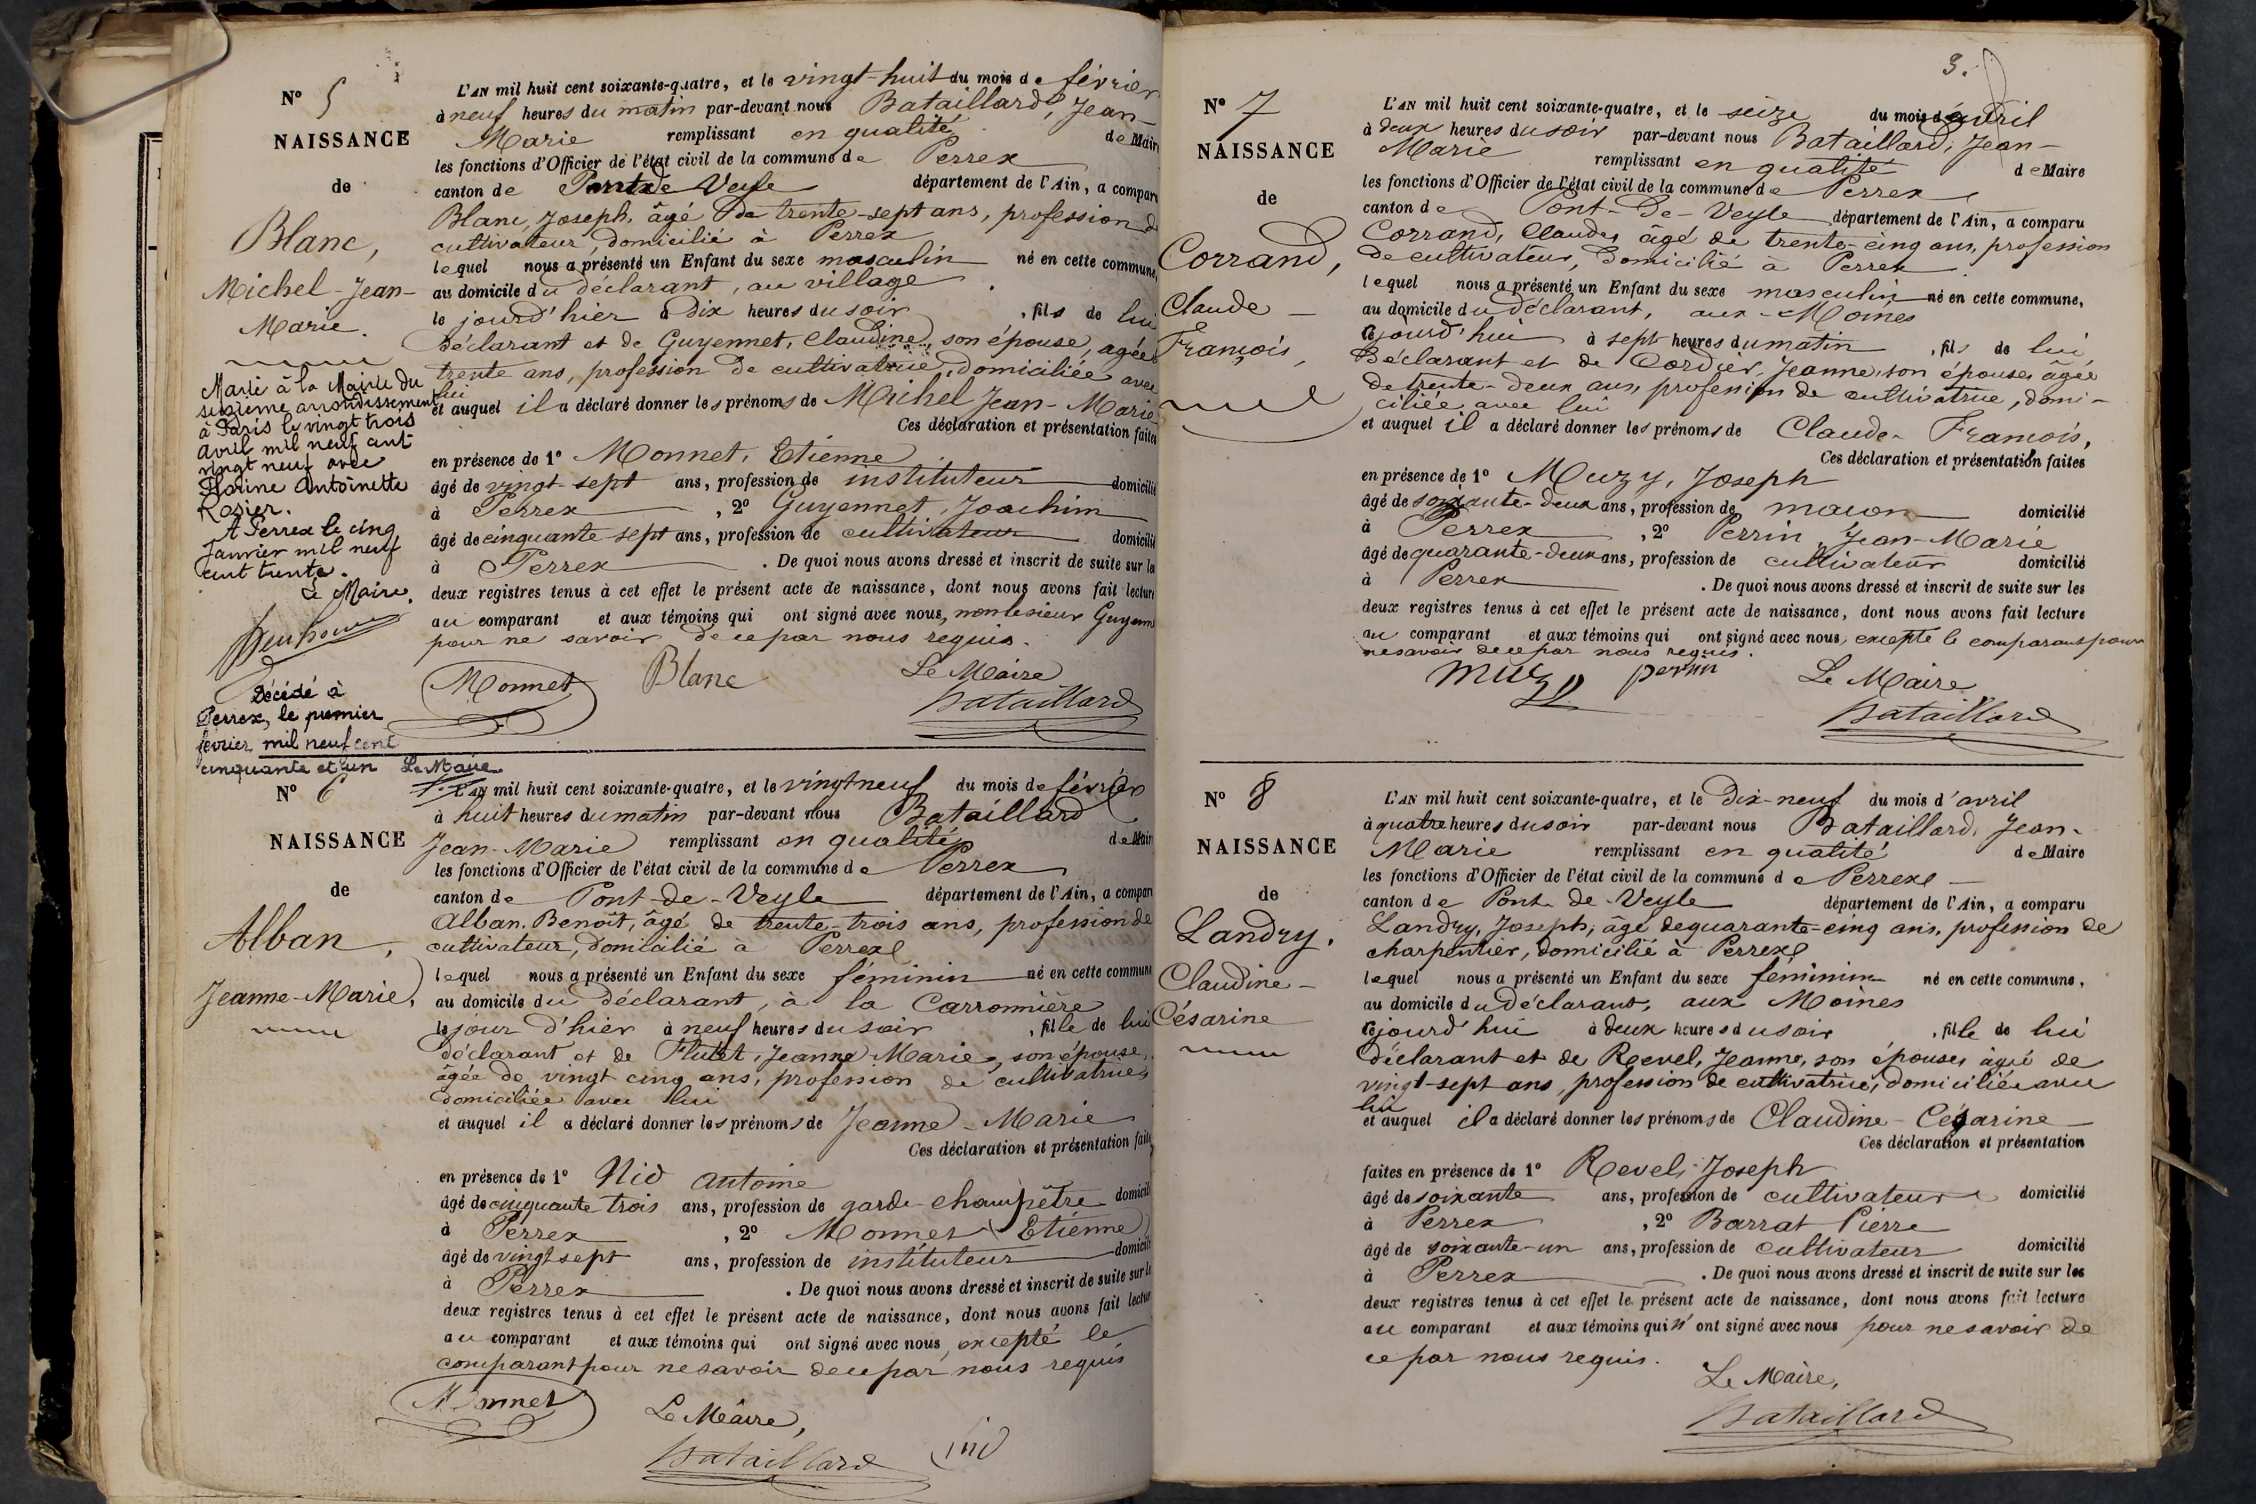 N° 5
NAISSANCE
de
Blanc,
Michel-Jean-
Marie.
Marié à la Mairie du
sixième arrondissement
à Paris le vingt trois
avril mil neuf cent
vingt neuf avec
Florine Antoinette
Rosier.
A Perrex le cinq
Janvier mil neuf
cent trente.
Le Maire,
Décédé à
Perrex, le premier
février mil neuf cent
cinquante et un Le Maire
L'AN mil huit cent soixante-quatre, et le vingt-huit du mois de février
à neuf heures du matin par-devant nous Bataillard, Jean-
Marie remplissant en qualité de Maire
les fonctions d'Officier de l'état civil de la commune de Perrex
canton de Pont de Veyle département de l'Ain, a comparu
Blanc, Joseph, âgé de trente-sept ans, profession de
cultivateur, domicilié à Perrex
lequel nous a présenté un Enfant du sexe masculin né en cette commune,
au domicile du déclarant, au village
le jourd'hier à dix heures du soir, fils de lui
déclarant et de Guyennet, Claudine, son épouse, agée
trente ans, profession de cultivatrice, domiciliée avec
lui
et auquel il a déclaré donner les prénoms de Michel Jean-Marie
Ces déclaration et présentation faites
en présence de 1° Monnet, Etienne
âgé de vingt-sept ans, profession de instituteur domicilié
à Perrex, 2° Guyennet, Joachim
âgé de cinquante sept ans, profession de cultivateur domicilié
à Perrex. De quoi nous avons dressé et inscrit de suite sur les
deux registres tenus à cet effet le présent acte de naissance, dont nous avons fait lecture
au comparant et aux témoins qui ont signé avec nous, non le sieur Guyennet
pour ne savoir de ce par nous requis.
Monnet Blanc Le Maire
Bataillard
N° 6
NAISSANCE
de
Alban,
Jeanne-Marie,
L'AN mil huit cent soixante-quatre, et le vingt neuf du mois de février
à huit heures du matin par-devant nous Bataillard
Jean-Marie remplissant en qualité de Maire
les fonctions d'Officier de l'état civil de la commune de Perrex
canton de Pont-de-Veyle département de l'Ain, a comparu
Alban, Benoît, âgé de trente-trois ans, profession de
cultivateur, domicilié à Perrex
lequel nous a présenté un Enfant du sexe féminin né en cette commune
au domicile du déclarant, à la Carronnière
le jour d'hier à neuf heures du soir, fille de lui
déclarant et de Flutet, Jeanne Marie, son épouse,
âgée de vingt cinq ans, profession de cultivatrice,
domiciliée avec lui
et auquel il a déclaré donner les prénoms de Jeanne-Marie
Ces déclaration et présentation faites
en présence de 1° Nid antoine
âgé de cinquante trois ans, profession de garde-champêtre domicilié
à Perrex, 2° Monnet Etienne
âgé de vingt sept ans, profession de instituteur domicilié
à Perrex. De quoi nous avons dressé et inscrit de suite sur les
deux registres tenus à cet effet le présent acte de naissance, dont nous avons fait lecture
au comparant et aux témoins qui ont signé avec nous, excepté le
comparant pour ne savoir de ce par nous requis
Monnet Le Maire,
Bataillard nid
3.
N° 7
NAISSANCE
de
Corrand,
Claude-
François,
L'AN mil huit cent soixante-quatre, et le seize du mois d'avril
à deux heures du soir par-devant nous Bataillard, Jean-
Marie remplissant en qualité de Maire
les fonctions d'Officier de l'état civil de la commune de Perrex
canton de Pont-de-Veyle département de l'Ain, a comparu
Corrand, Claude, âgé de trente-cinq ans, profession
de cultivateur, domicilié à Perrex.
lequel nous a présenté un Enfant du sexe masculin né en cette commune,
au domicile du déclarant, aux-Moines
cejourd'hui à sept heures du matin, fils de lui
déclarant et de Cordier, Jeanne, son épouse, âgée
de trente-deux ans, profession de cultivatrice, domi-
ciliée avec lui
et auquel il a déclaré donner les prénoms de Claude-François,
Ces déclaration et présentation faites
en présence de 1° Muzy, Joseph
âgé de soixante-deux ans, profession de maçon domicilié
à Perrex, 2° Perrin, Jean-Marie
âgé de quarante-deux ans, profession de cultivateur domicilié
à Perrex. De quoi nous avons dressé et inscrit de suite sur les
deux registres tenus à cet effet le présent acte de naissance, dont nous avons fait lecture
au comparant et aux témoins qui ont signé avec nous, excepté le comparant pour
ne savoir de ce par nous requis.
Muzy perrin Le Maire
Bataillard
N° 8
NAISSANCE
de
Landry,
Claudine-
Césarine
L'AN mil huit cent soixante-quatre, et le dix-neuf du mois d'avril
à quatre heures du soir par-devant nous Bataillard, Jean-
Marie remplissant en qualité de Maire
les fonctions d'Officier de l'état civil de la commune de Perrex
canton de Pont-de-Veyle département de l'Ain, a comparu
Landry, Joseph, âgé de quarante-cinq ans, profession de
charpentier, domicilié à Perrex
lequel nous a présenté un Enfant du sexe féminin né en cette commune,
au domicile du déclarant, aux Moines
cejourd'hui à deux heures du soir, fille de lui
déclarant et de Revel, Jeanne, son épouse, âgée de
vingt-sept ans, profession de cultivatrice, domiciliée avec
lui
et auquel il a déclaré donner les prénoms de Claudine-Césarine
Ces déclaration et présentation
faites en présence de 1° Revel, Joseph
âgé de soixante ans, profession de cultivateur domicilié
à Perrex, 2° Barrat Pierre
âgé de soixante-un ans, profession de cultivateur domicilié
à Perrex. De quoi nous avons dressé et inscrit de suite sur les
deux registres tenus à cet effet le présent acte de naissance, dont nous avons fait lecture
au comparant et aux témoins qui n'ont signé avec nous pour ne savoir de
ce par nous requis.
Le Maire,
Bataillard